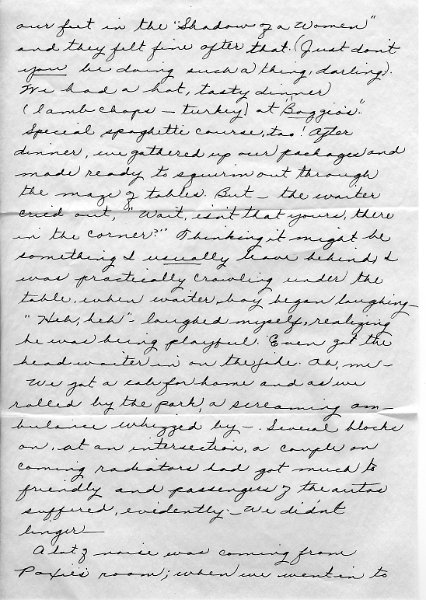 our feet in the "Shadow of a Women"
and they felt fine after that. (Just don't
you be doing such a thing, darling).
We had a hot, tasty dinner
(lamb chops - turkey) at "Boggio's".
Special spaghetti course, too! After
dinner, we gathered up our packages and
made ready to squirm out through
the maze of tables. But - the waiter
cried out, "Wait, isn't that yours, there
in the corner?" Thinking it might be
something I usually leave behind, I
was practically crawling under the
table, when waiter, boy began laughing -
"Heh, heh" - laughed myself, realizing
he was being playful. Even got the
head waiter in on the joke. Ah, me -
We got a cab for home and as we
rolled by the park, a screaming am-
bulance whizzed by -. Several blocks
on, at an intersection, a couple on
coming radiators had got much to
friendly and passengers of the autos
suffered, evidently - We didn't
linger -
A lot of noise was coming from
room; when we went in to